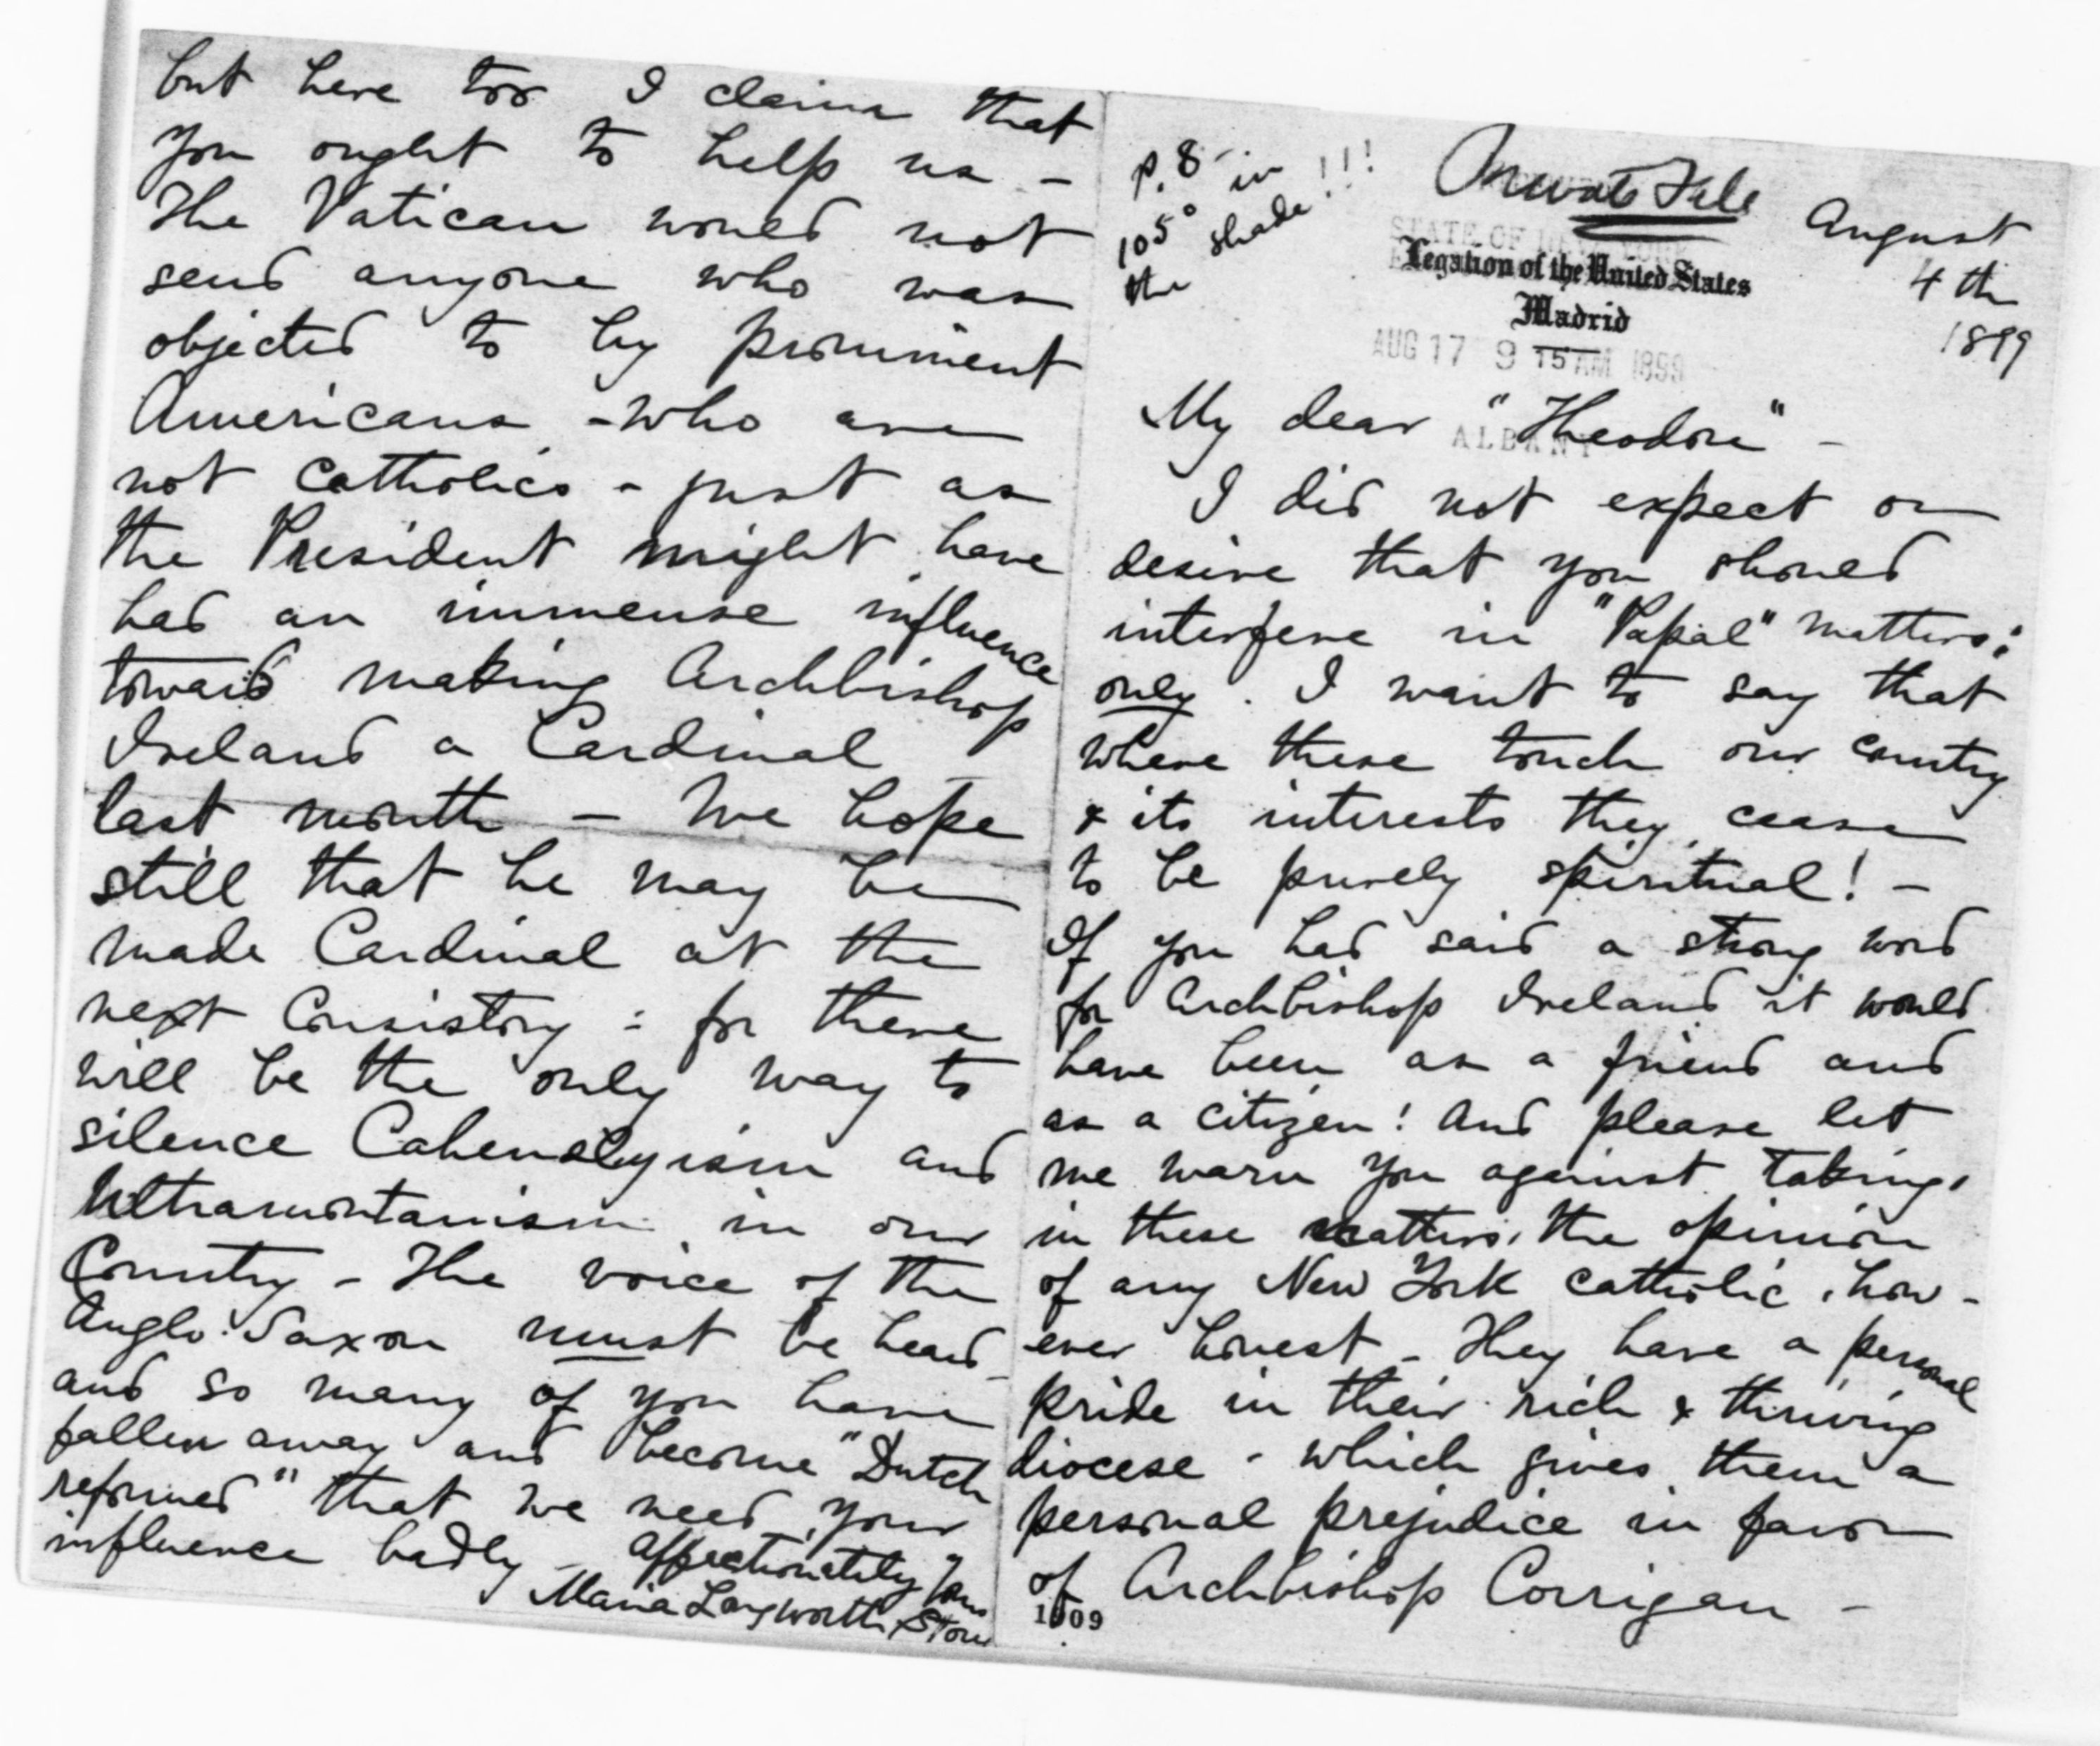 Private File
105° in
the shade!!!
August
4th
1899
Legation of the United States
Madrid
AUG 17 9 15 AM 1899
ALBANY
My dear "Theodore" -
I did not expect or
desire that you should
interfere in "Papal" matters:
only. I want to say that
where these touch our country
& its interests they cease
to be purely spiritual! -
If you had said a strong word
for Archbishop Ireland it would
have been as a friend and
as a citizen! And please let
me warn you against taking,
in these matters, the opinion
of any New York Catholic, how-
ever honest - They have a personal
pride in their rich & thriving
diocese - which gives them a
personal prejudice in favor
of Archbishop Corrigan -
1009
but here too I claim that
you ought to help us -
The Vatican would not
send anyone who was
objected to by prominent
Americans - who are
not Catholics - just as
the President might have
had an immense influence
toward making Archbishop
Ireland a Cardinal
last month - We hope
still that he may be
made Cardinal at the
next Consistory : for there
will be the only way to
silence Cahenslyism and
Ultramontanism in our
Country - The voice of the
Anglo-Saxon must be heard -
and so many of you have
fallen away and become "Dutch
reformed" that we need your
influence badly - Affectionately Yours
Maria Longworth Storer